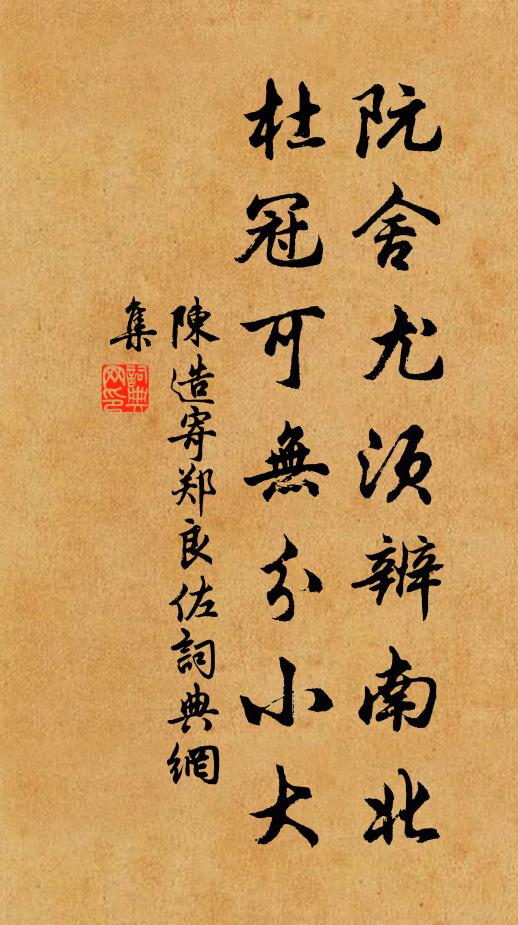 阮舍尤须辨南北
杜冠可無分小大
陳造寄郑良佐詞典網
集
詞典
网印